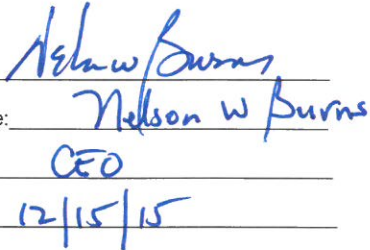 Nelson W Burns
e: Nelson W Burns
CEO
12/15/15